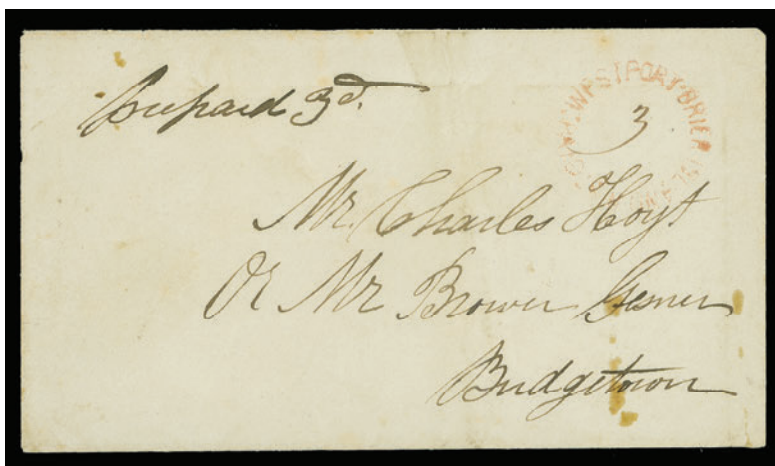 Prepaid 3d.
WESTPORT BRIER
3
Mr. Charles Hoyt
Or Mr Brower Gesner
Bridgetown